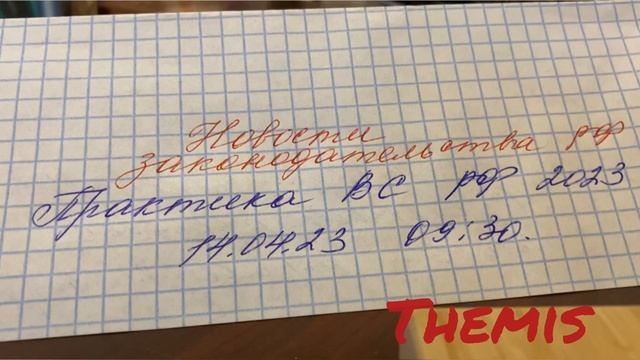 Новости
законодательства РФ
Практика ВС РФ 2023
14.04.23 09:30.
THEMIS